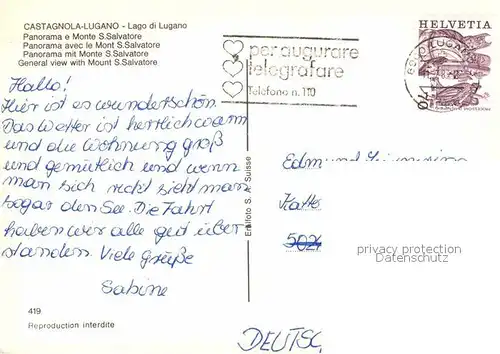 CASTAGNOLA-LUGANO - Lago di Lugano
Panorama e Monte S.Salvatore
Panorama avec le Mont S.Salvatore
Panorama mit Monte S.Salvatore
General view with Mount S.Salvatore
HELVETIA
per augurare
telegrafare
Telefono n. 110
LUGANO
Hallo!
Hier ist es wunderschön.
Das Wetter ist herrlich warm
und die Wohnung groß
und gemütlich und wenn
man sich reckt sieht man
sogar den See. Die Fahrt
haben wir alle gut über
standen. Viele Grüße
Sabine
Engelfoto S. A. Suisse
5024
privacy protection
Datenschutz
DEUTSC
419
Reproduction interdite